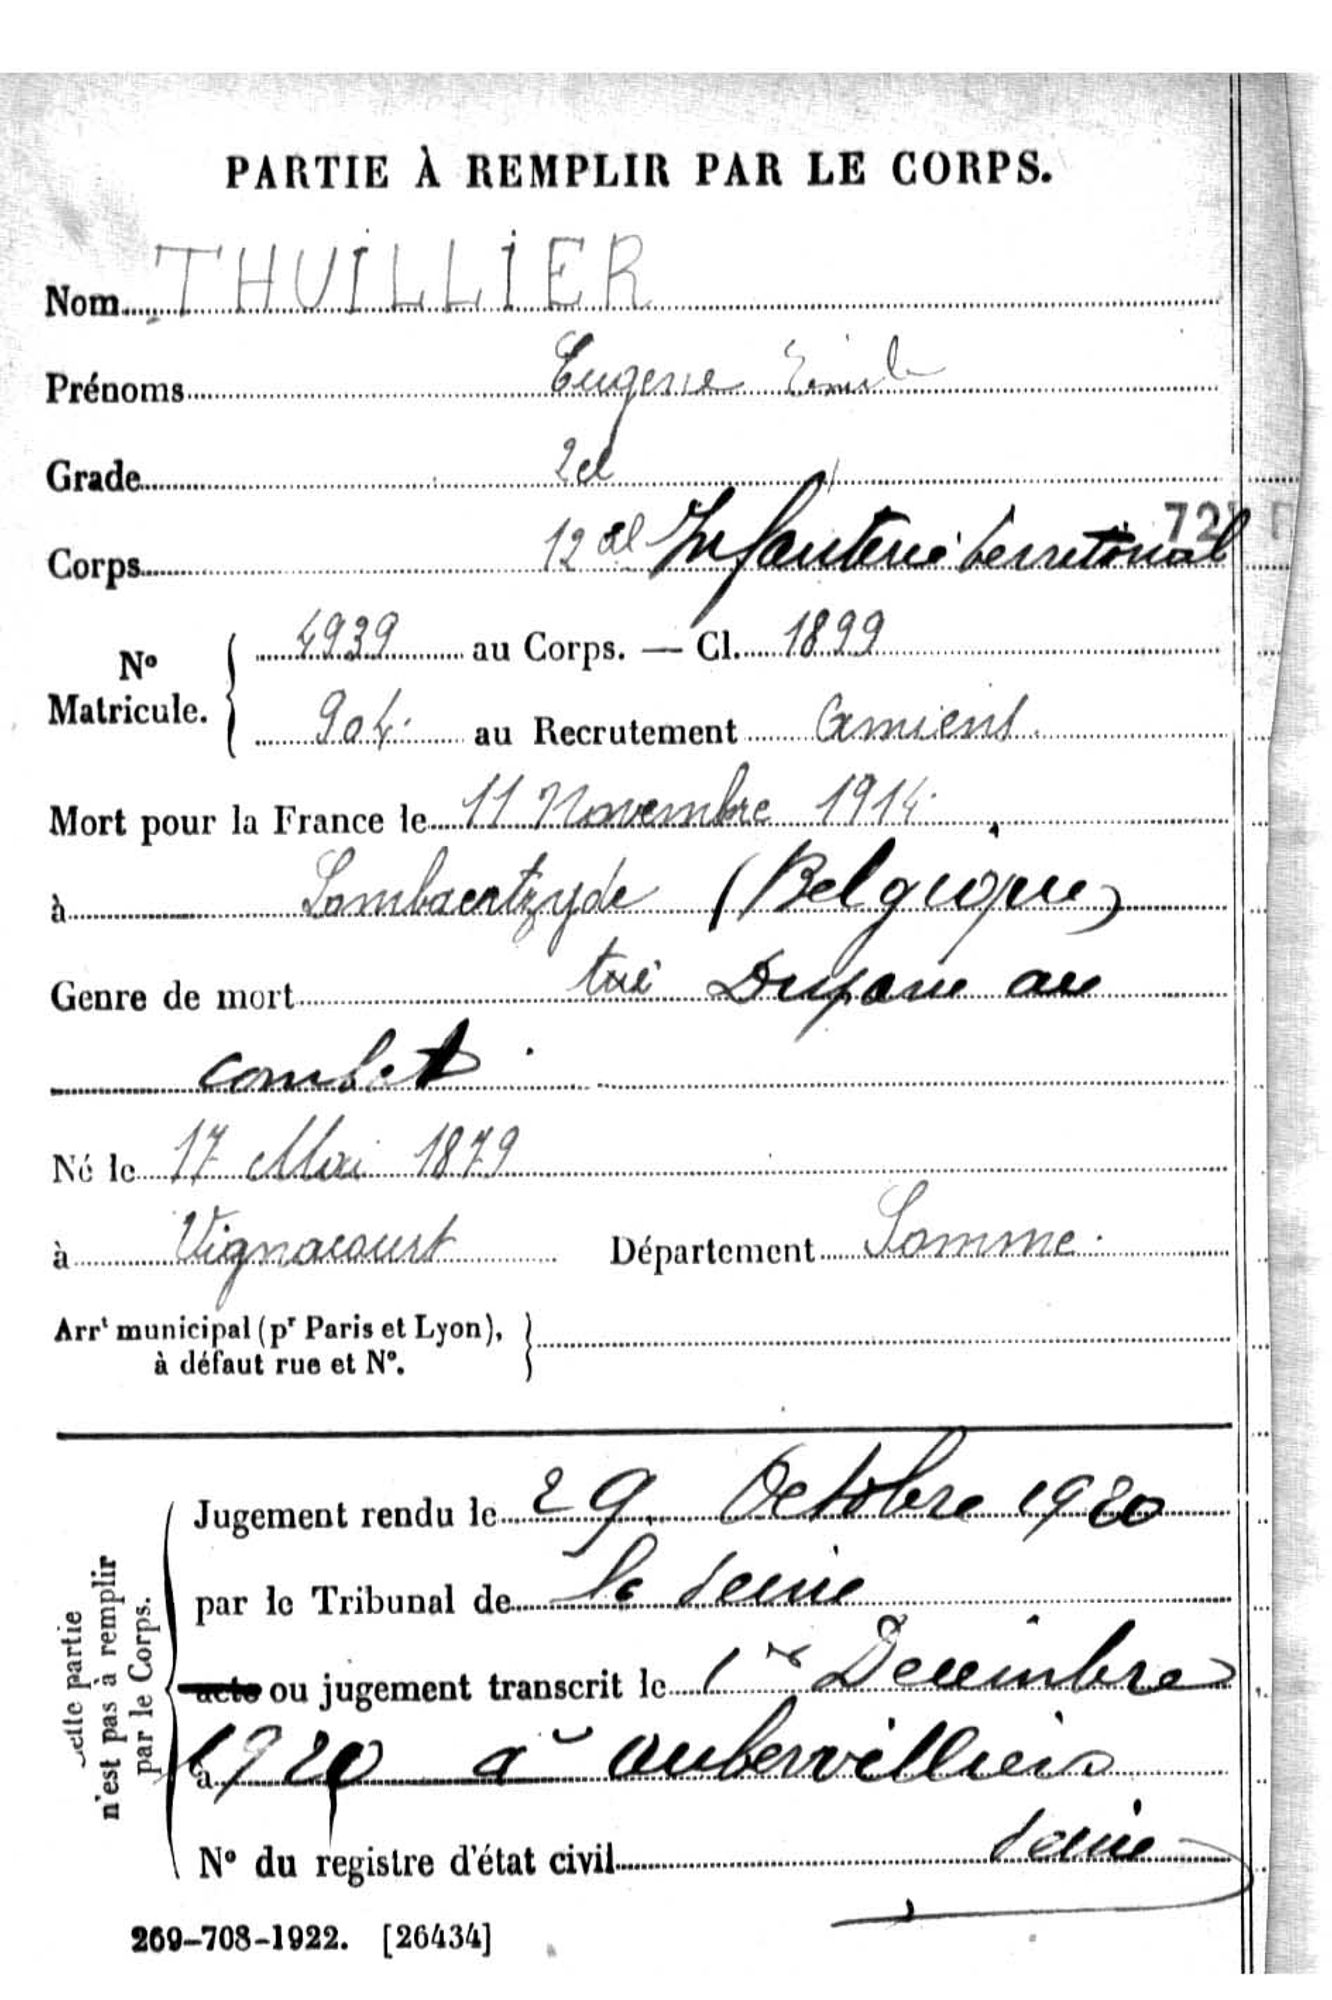 PARTIE À REMPLIR PAR LE CORPS.
Nom THUILLIER
Prénoms Eugene Emile
Grade 2cl
Corps 12 Infanterie territorial 72
No Matricule. 4939 au Corps. — Cl. 1899
904 au Recrutement Amiens
Mort pour la France le 11 Novembre 1914
à Lombaertzyde (Belgique)
Genre de mort tué Disparu au
combat
Né le 17 Mai 1879
à Vignacourt Département Somme
Arrt municipal (pr Paris et Lyon),
à défaut rue et No.
Cette partie
n'est pas à remplir
par le Corps.
Jugement rendu le 29 Octobre 1920
par le Tribunal de la Seine
acte ou jugement transcrit le 1er Decembre
à 1920 à aubervilliers
No du registre d'état civil Seine
269-708-1922. [26434]